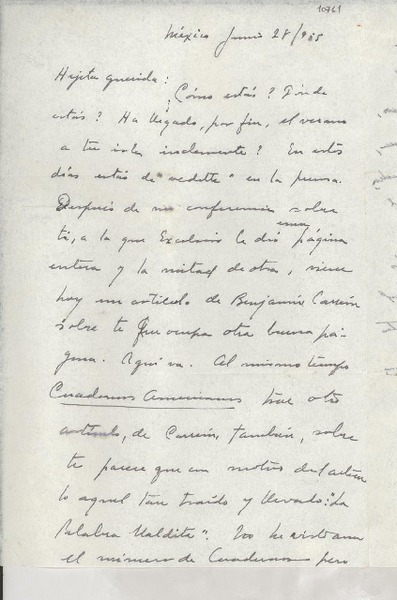 10761
México Junio 28/955
Hijita querida:
¿Cómo estás? ¿Dónde
estás? ¿Ha llegado, por fin, el verano
a tu isla inclemente? En estos
días estás de "vedette" en la prensa.
Después de mi conferencia sobre
ti, a la que Excelsior le dió una página
entera y la mitad de otra, viene
hoy un artículo de Benjamín Carrión
sobre ti que ocupa otra buena pá-
gina. Aquí va. Al mismo tiempo
Cuadernos Americanos trae otro
artículo, de Carrión, también, sobre
te parece que con motivo del
lo aquel tan traído y llevado: "La
Palabra Maldita". No he visto aun
el número de Cuadernos pero